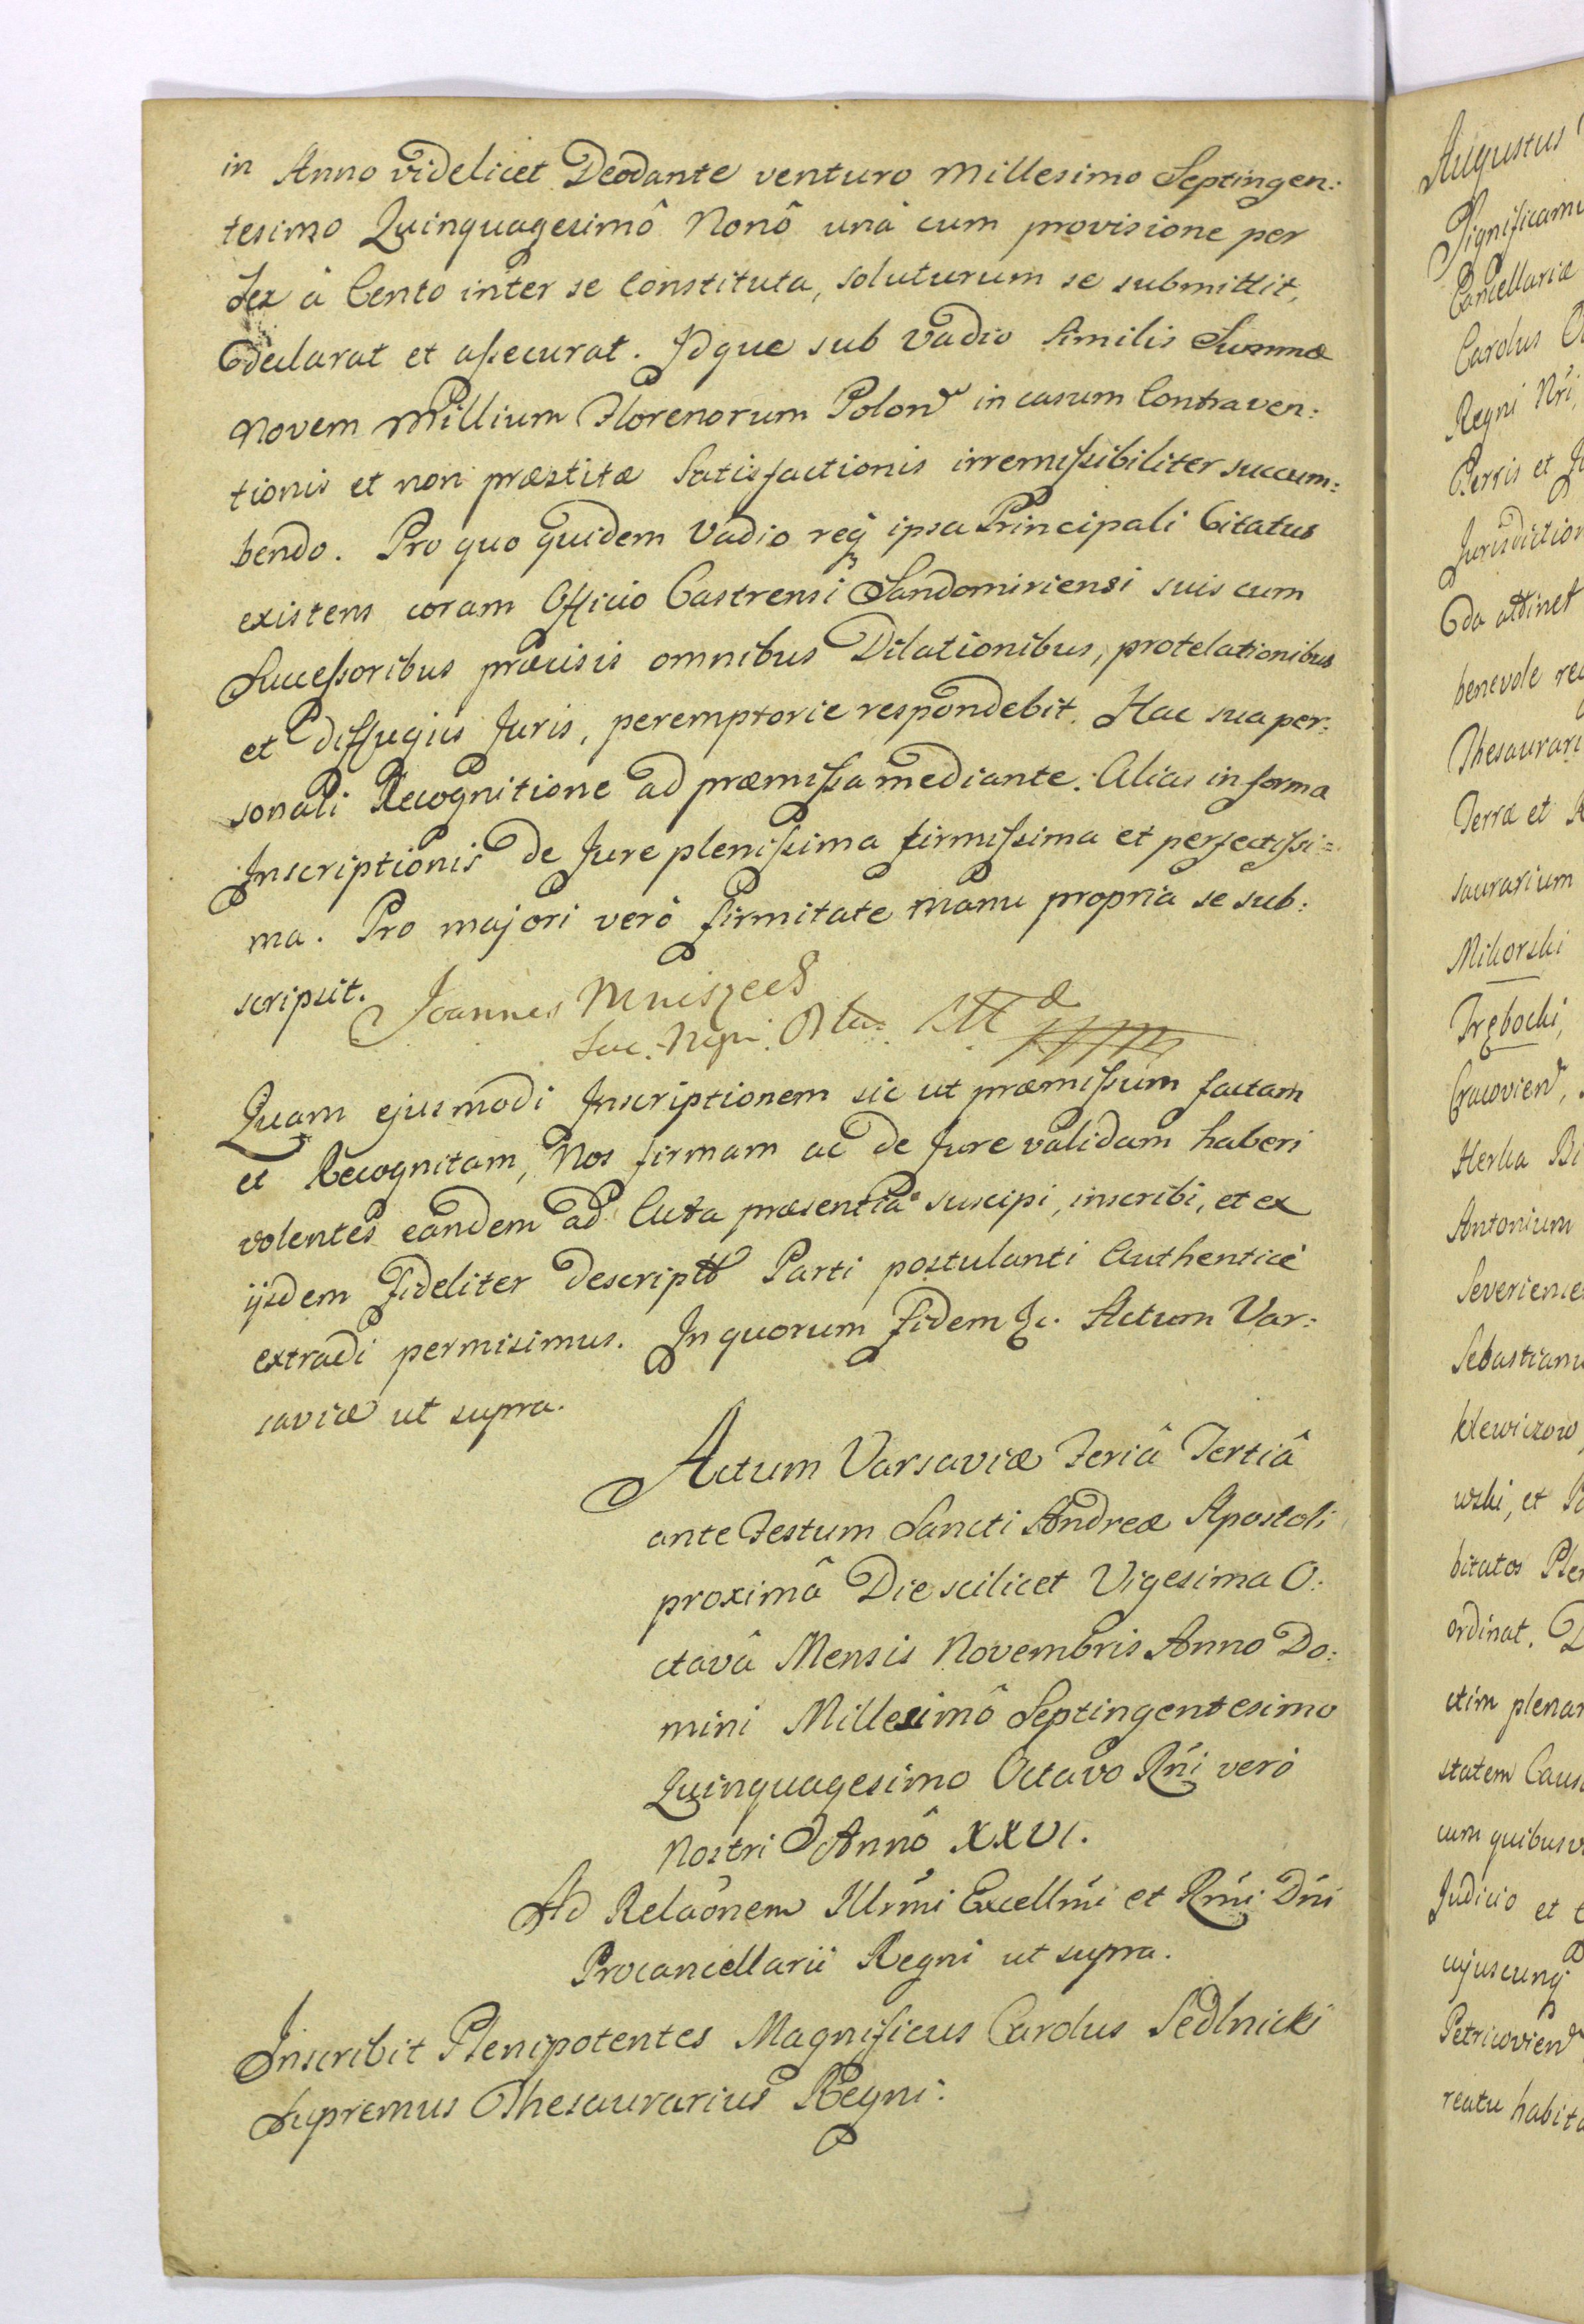 in Anno videlicet Deodante venturo Millesimo Septingen:
tesimo Quinquagesimô Nonô unà cum provisione per
Sex à Cento inter se Constituta, soluturum se submittit,
declarat et assecurat. Idque sub vadio similis Summæ
Novem Millium Florenorum Polon in casum Contraven:
tionis et non præstitæ Satisfactionis irremissibiliter succum:
bendo. Pro quo quidem Vadio req ipsa Principali Citatus
existens coram Officio Castrensi Sandomiriensi suis cum
Successoribus præcisis omnibus Dilationibus, protelationibus
et diffugiis Juris, peremptorie respondebit. Hac sua per:
sonali Recognitione ad præmissa mediante. Alias in forma
Inscriptionis de Jure plenissima firmissima et perfectissi=
ma. Pro majori verô firmitate manu propria se sub:
scripsit.
Joannes Mniszech
Quam ejusmodi Inscriptionem sic ut præmissum factam
et Recognitam, Nos firmam ac de Jure validam haberi
volentes eandem ad Acta præsentia suscipi, inscribi, et ex
ijsdem fideliter descript Parti postulanti Authenticè
extradi permisimus. In quorum fidem &c. Actum Var:
saviæ ut supra.
Actum Varsaviæ Feriâ Tertiâ
ante Festum Sancti Andreæ Apostoli
proximâ Die scilicet Vigesima O:
ctavâ Mensis Novembris Anno Do:
mini Millesimô Septingentesimo
Quinquagesimo Octavo Rni verò
Nostri Annô XXVI.
Ad Relaônem Illrmi Excellmi et Rmi Dni
Procancellarii Regni ut supra.
Inscribit Plenipotentes Magnificus Carolus Sedlnicki
Supremus Thesaurarius Regni.
Augustus
Significamu
Cancellariæ
Carolus
Regni Nri,
Terris et
Jurisdiction
attinet
benevole
Thesaurari
Terræ et
saurarium
Mikorski
Trębocki,
Cracovien,
Antonium
Sebastianu
wski, et
bitatos
ordinat.
ctim plenar
statem Caus
cum quibusv
Judicio et
cujuscunq
Petricovien
reatu habit